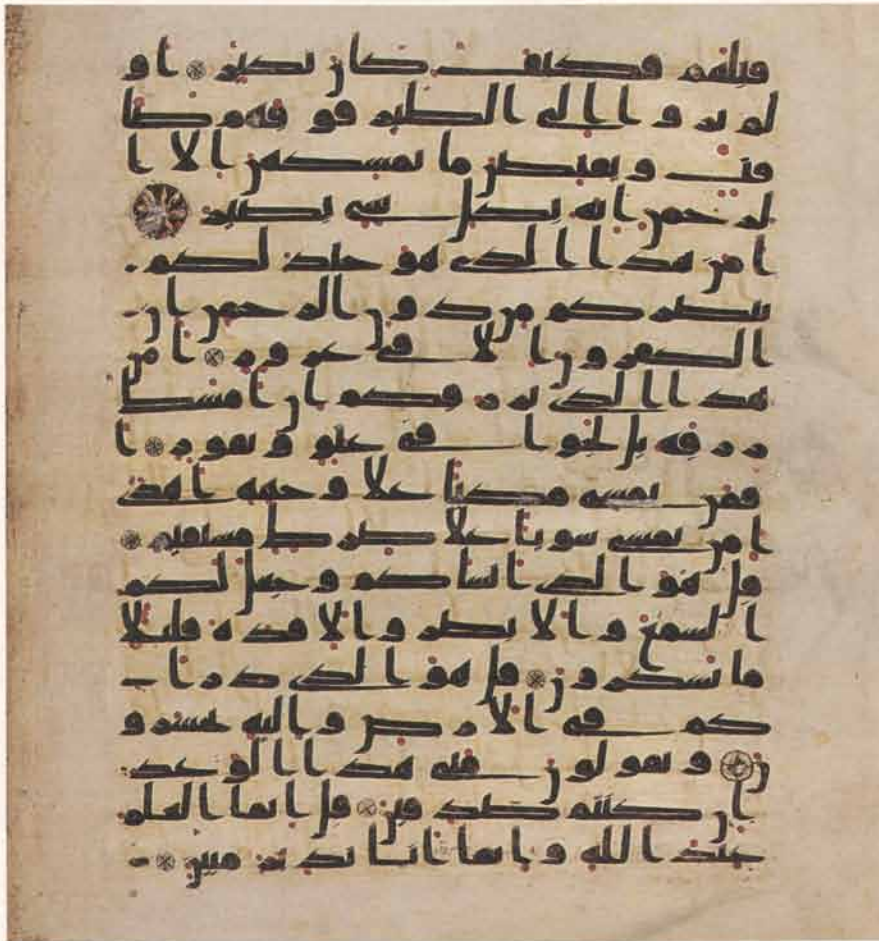 قبلهم فكيف كان نكير او
لم يروا الى الطير فوقهم صا
فت ويقبضن ما يمسكهن الا ا
لرحمن انه بكل شي بصير
امن هذا الذي هو جند لكم
ينصركم من دون الرحمن ان
الكفرون الا في غرور امن
هذا الذي يرزقكم ان امسك
رزقه بل لجوا في عتو ونفور ا
فمن يمشي مكبا على وجهه اهدى
امن يمشي سويا على صرط مستقيم
قل هو الذي انشاكم وجعل لكم
السمع والابصر والافده قليلا
ما تشكرون قل هو الذي ذرا
كم في الارض واليه تحشرو
ن ويقولون متى هذا الوعد
ان كنتم صدقين قل انما العلم
عند الله وانما انا نذير مبين